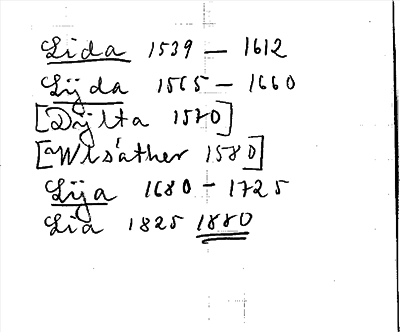 Lida 1539 – 1612
Lijda 1565 – 1660
[Dijlta 1570]
[Wis'ather 1580]
Lija 1680 – 1725
Lia 1825 1880